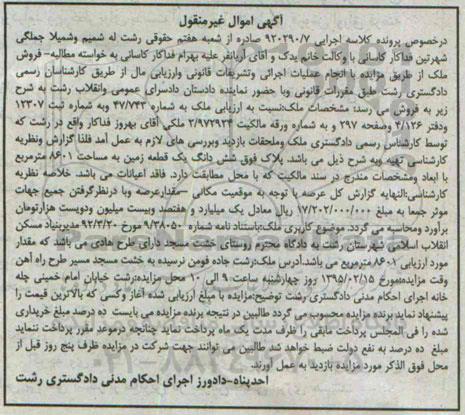 آگهی اموال غیرمنقول
درخصوص پرونده کلاسه اجرایی ۹۲۰۲۹۰/۷ صادره از شعبه هفتم حقوقی رشت له شمیم وشمیلا جملگی
شهرتین فداکار کاسانی با وکالت خانم یدک و آقای آریانفر علیه بهرام فداکار کاسانی به خواسته مطالبه- فروش
ملک از طریق مزایده با انجام عملیات اجرائی وتشریفات قانونی وارزیابی مال از طریق کارشناسان رسمی
دادگستری رشت طبق مقررات قانونی وبا حضور نماینده دادستان دادسرای عمومی وانقلاب رشت به شرح
زیر به فروش می رسد: مشخصات ملک:نسبت به ارزیابی ملک به شماره ۴۷/۷۴۳ وبه شماره ثبت ۱۲۳۰۷
ودفتر ۴/۱۲۶ وصفحه ۲۹۷ و به شماره ورقه مالکیت ۲/۹۷۲۹۳۴ ملکی آقای بهروز فداکار واقع در رشت که
توسط کارشناس رسمی دادگستری ملک وملحقات بازدید وبررسی های لازم به عمل آمد فلذا گزارش ونظریه
کارشناسی تهیه وبه شرح ذیل می باشد. پلاک فوق شش دانگ یک قطعه زمین به مساحت ۸۶۰۱ مترمربع
با ابعاد ومشخصات مندرج در سند مالکیت که با محل مطابقت دارد. فاقد اعیانات می باشد. خلاصه نظریه
کارشناسی:النهایه گزارش کل عرصه با توجه به موقعیت مکانی – مقدارعرصه وبا درنظرگرفتن جمیع جهات
موثر جمعا به مبلغ ۱۷/۲۰۲/۰۰۰/۰۰۰ ریال معادل یک میلیارد و هفتصد وبیست میلیون ودویست هزارتومان
برآورد ومحاسبه می گردد. موضوع کاربری ملک:باستناد نامه شماره ۹/۳۸۰۵۰ مورخ ۹۲/۳/۲۰ مدیربنیاد مسکن
انقلاب اسلامی شهرستان رشت به دادگاه محترم روستای خشت مسجد دارای طرح هادی می باشد که مقدار
مورد ارزیابی ۸۶۰۱مترمربع می باشد.آدرس ملک:رشت جاده فومن نرسیده به خشت مسجد مسیر طرح راه آهن
وقت مزایده:مورخ ۱۳۹۵/۰۲/۱۵ روز چهارشنبه ساعت ۹ الی ۱۰ محل مزایده:رشت خیابان امام خمینی چله
خانه اجرای احکام مدنی دادگستری رشت توضیح:مزایده با مبلغ ارزیابی شده آغاز وکسی که بالاترین قیمت را
پیشنهاد نماید برنده مزایده محسوب می گردد طالبین در نتیجه برنده مزایده می بایست ده درصد مبلغ خریداری
شده را فی المجلس پرداخت مابقی را ظرف مدت یک ماه پرداخت نماید چنانچه درموعد مقرر پرداخت ننماید
مبلغ ده درصد به نفع دولت ضبط خواهد شد طالبین می توانند جهت شرکت در مزایده ظرف پنج روز قبل از
محل فوق الذکر مورد مزایده بازدید به عمل آورند.
احدپناه-دادورز اجرای احکام مدنی دادگستری رشت